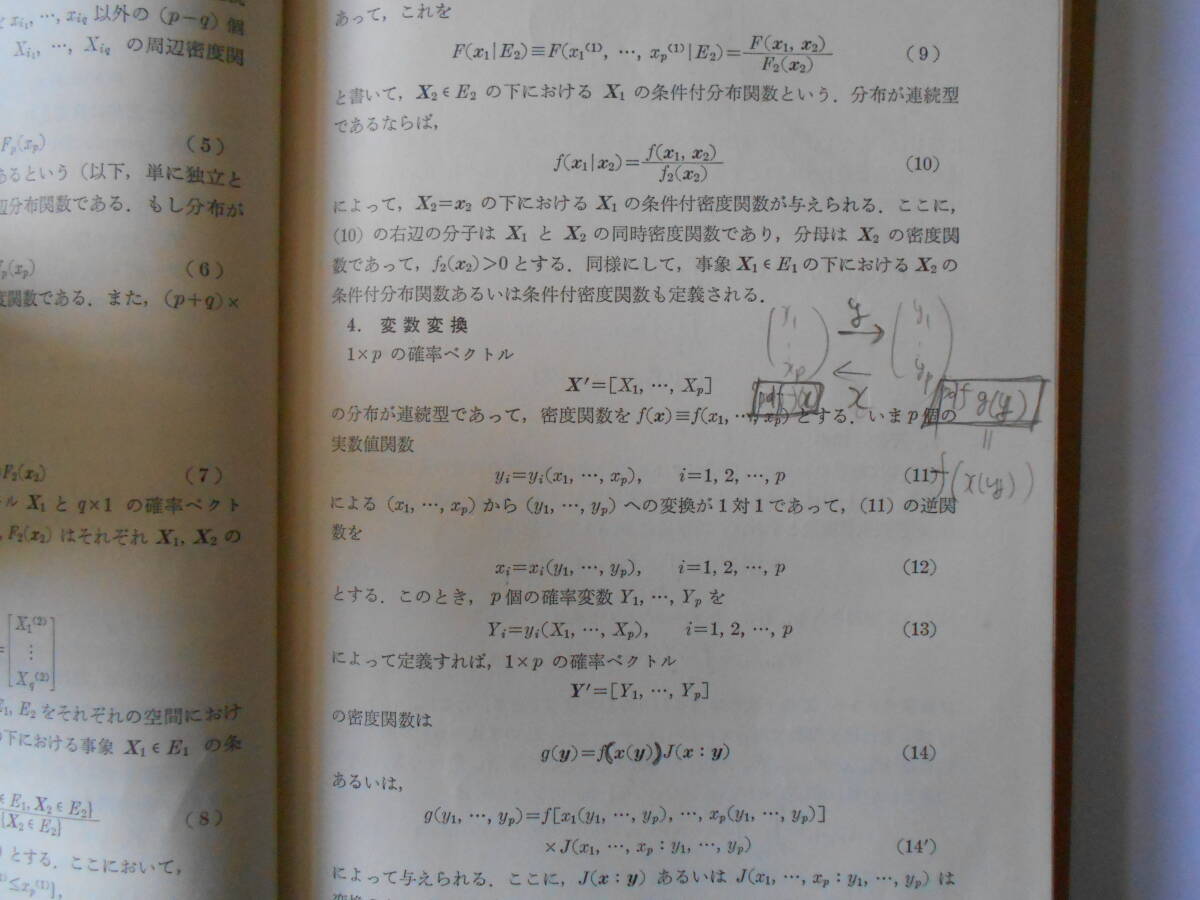 以外の (p−q) 個
の周辺密度関
Fp(xp) (5)
あるという (以下, 単に独立と
辺分布関数である. もし分布が
(6)
度関数である. また, (p+q)×
F2(x2) (7)
トル X1 と q×1 の確率ベクト
F2(x2) はそれぞれ X1, X2 の
=[X1(2) ⋮ Xq(2)]
E1, E2 をそれぞれの空間におけ
の下における事象 X1∈E1 の条
∈E1, X2∈E2}
{X2∈E2} (8)
とする. ここにおいて,
≤xp(1)],
あって, これを
F(x1|E2)≡F(x1(1), …, xp(1)|E2)=F(x1, x2)/F2(x2) (9)
と書いて, X2∈E2 の下における X1 の条件付分布関数という. 分布が連続型
であるならば,
f(x1|x2)=f(x1, x2)/f2(x2) (10)
によって, X2=x2 の下における X1 の条件付密度関数が与えられる. ここに,
(10) の右辺の分子は X1 と X2 の同時密度関数であり, 分母は X2 の密度関
数であって, f2(x2)>0とする. 同様にして, 事象 X1∈E1 の下における X2 の
条件付分布関数あるいは条件付密度関数も定義される.
4. 変数変換
1×p の確率ベクトル
X′=[X1, …, Xp]
の分布が連続型であって, 密度関数を f(x)≡f(x1, …, xp) とする. いま p 個の
実数値関数
yi=yi(x1, …, xp), i=1, 2, …, p (11)
による (x1, …, xp) から (y1, …, yp) への変換が1対1であって, (11) の逆関
数を
xi=xi(y1, …, yp), i=1, 2, …, p (12)
とする. このとき, p個の確率変数 Y1, …, Yp を
Yi=yi(X1, …, Xp), i=1, 2, …, p (13)
によって定義すれば, 1×p の確率ベクトル
Y′=[Y1, …, Yp]
の密度関数は
g(y)=f(x(y))J(x : y) (14)
あるいは,
g(y1, …, yp)=f[x1(y1, …, yp), …, xp(y1, …, yp)]
×J(x1, …, xp : y1, …, yp) (14′)
によって与えられる. ここに, J(x : y) あるいは J(x1, …, xp : y1, …, yp) は
(x1 ⋮ xp) y → ← x (y1 ⋮ yp)
pdf f(x)
pdf g(y)
||
f(x(y))